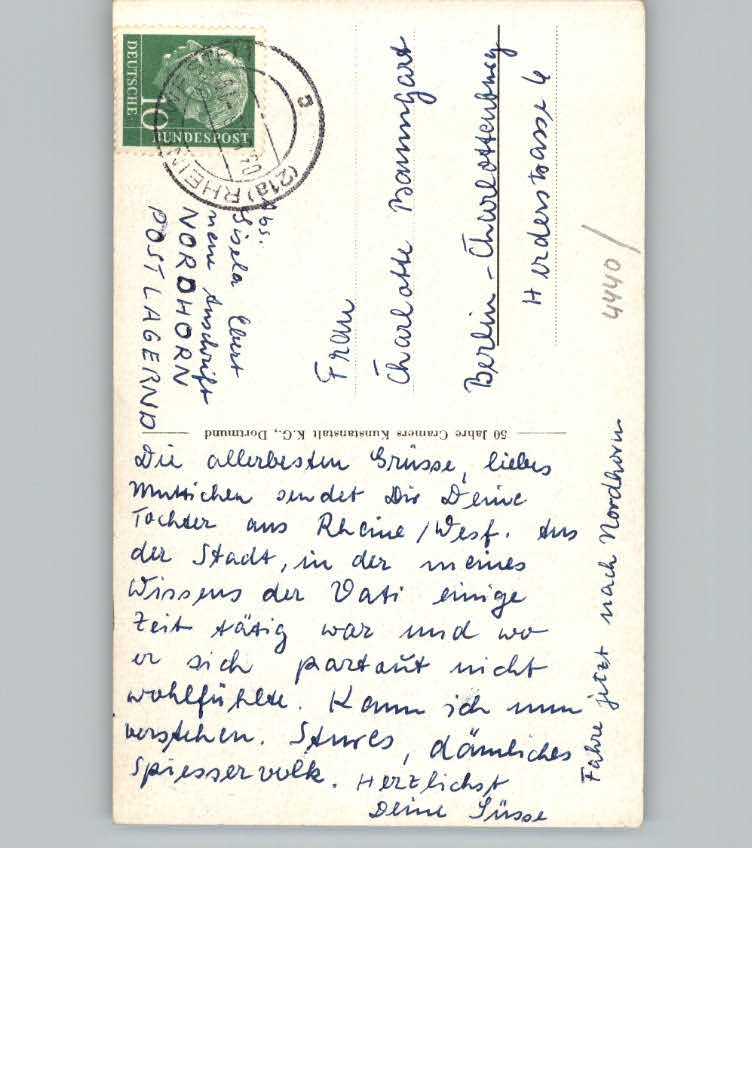 DEUTSCHE
10
BUNDESPOST
(21a) RHEINE
a
Abs.
Gisela Ebert
meine Anschrift
NORDHORN
POSTLAGERND
Frau
Charlotte Baumgart
Berlin-Charlottenburg
Herderstrasse 6
4440/
50 Jahre Cramers Kunstanstalt K.G., Dortmund
Die allerbesten Grüsse, liebes
Muttichen sendet Dir Deine
Tochter aus Rheine/Westf. Aus
der Stadt, in der meines
Wissens der Vati einige
Zeit tätig war und wo
er sich partout nicht
wohlfühlte. Kann ich nun
verstehen. Stures, dämliches
Spiesservolk. Herzlichst
Deine Süsse
Fahre jetzt nach Nordhorn